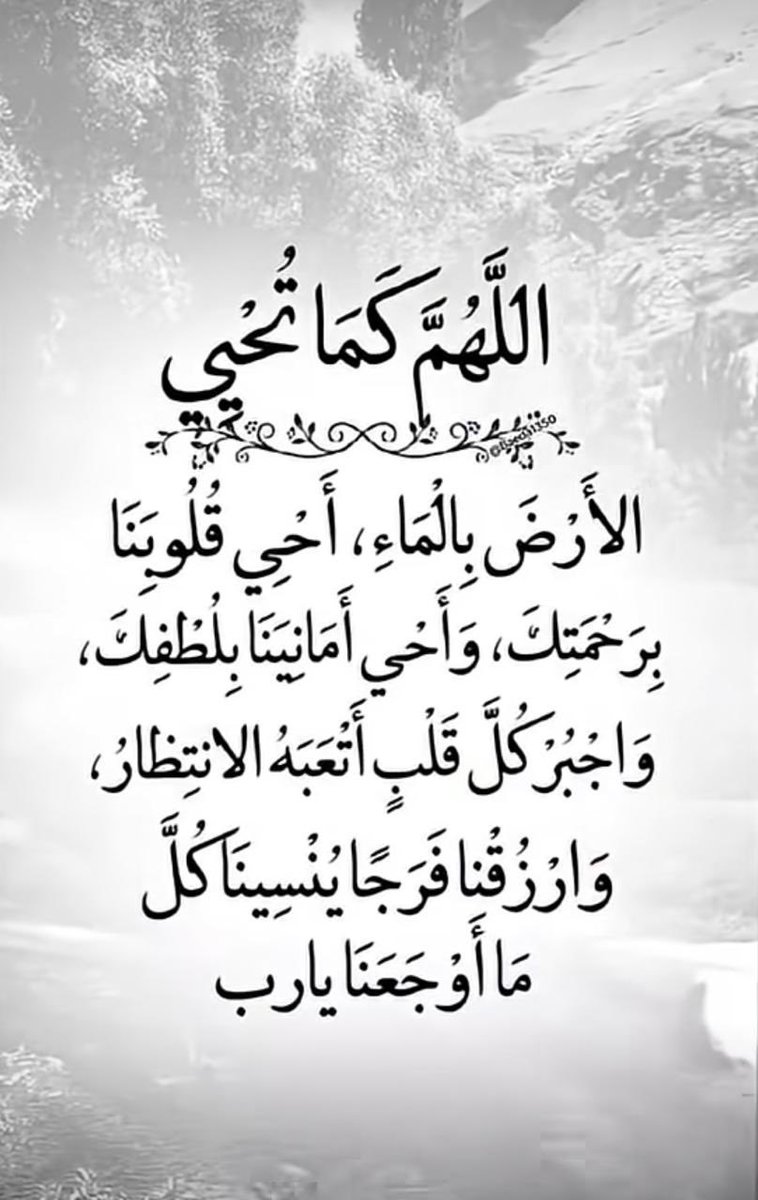 اللَّهُمَّ كَمَا تُحْيِي
الأَرْضَ بِالْمَاءِ، أَحْيِ قُلُوبَنَا
بِرَحْمَتِكَ، وَأَحْيِ أَمَانِيَنَا بِلُطْفِكَ،
وَاجْبُرْ كُلَّ قَلْبٍ أَتْعَبَهُ الانتِظارُ،
وَارْزُقْنا فَرَجًا يُنْسِينَا كُلَّ
مَا أَوْجَعَنَا يارب